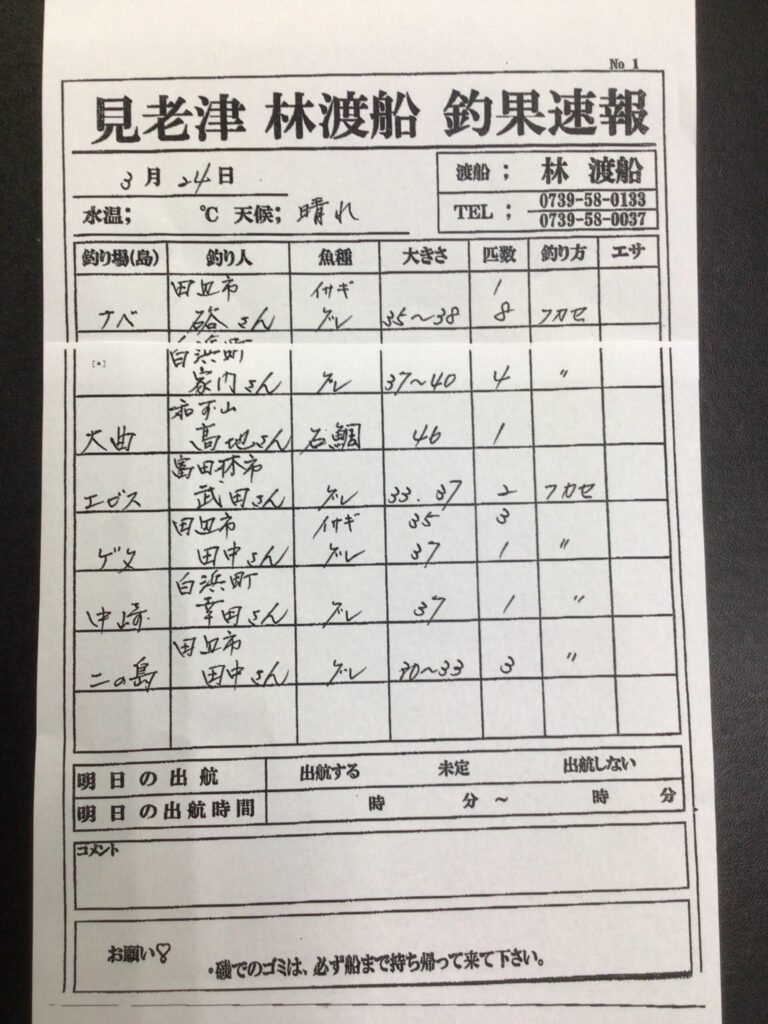 No 1
見老津 林渡船 釣果速報
3月 24日
渡船； 林 渡船
水温； ℃ 天候； 晴れ
TEL； 0739-58-0133
0739-58-0037
釣り場(島) 釣り人 魚種 大きさ 匹数 釣り方 エサ
田辺市 イサギ 1
ナベ さん グレ 35～38 8 フカセ
白浜町
家内さん グレ 37～40 4 〃
和歌山
大曲 高地さん 石鯛 46 1
富田林市
エビス 武田さん グレ 33.37 2 フカセ
田辺市 イサギ 35 3
ゲタ 田中さん グレ 37 1 〃
白浜町
中崎 幸田さん グレ 37 1 〃
田辺市
二の島 田中さん グレ 30～33 3 〃
明日の出航 出航する 未定 出航しない
明日の出航時間 時 分～ 時 分
コメント
お願い♡
・磯でのゴミは、必ず船まで持ち帰って来て下さい。